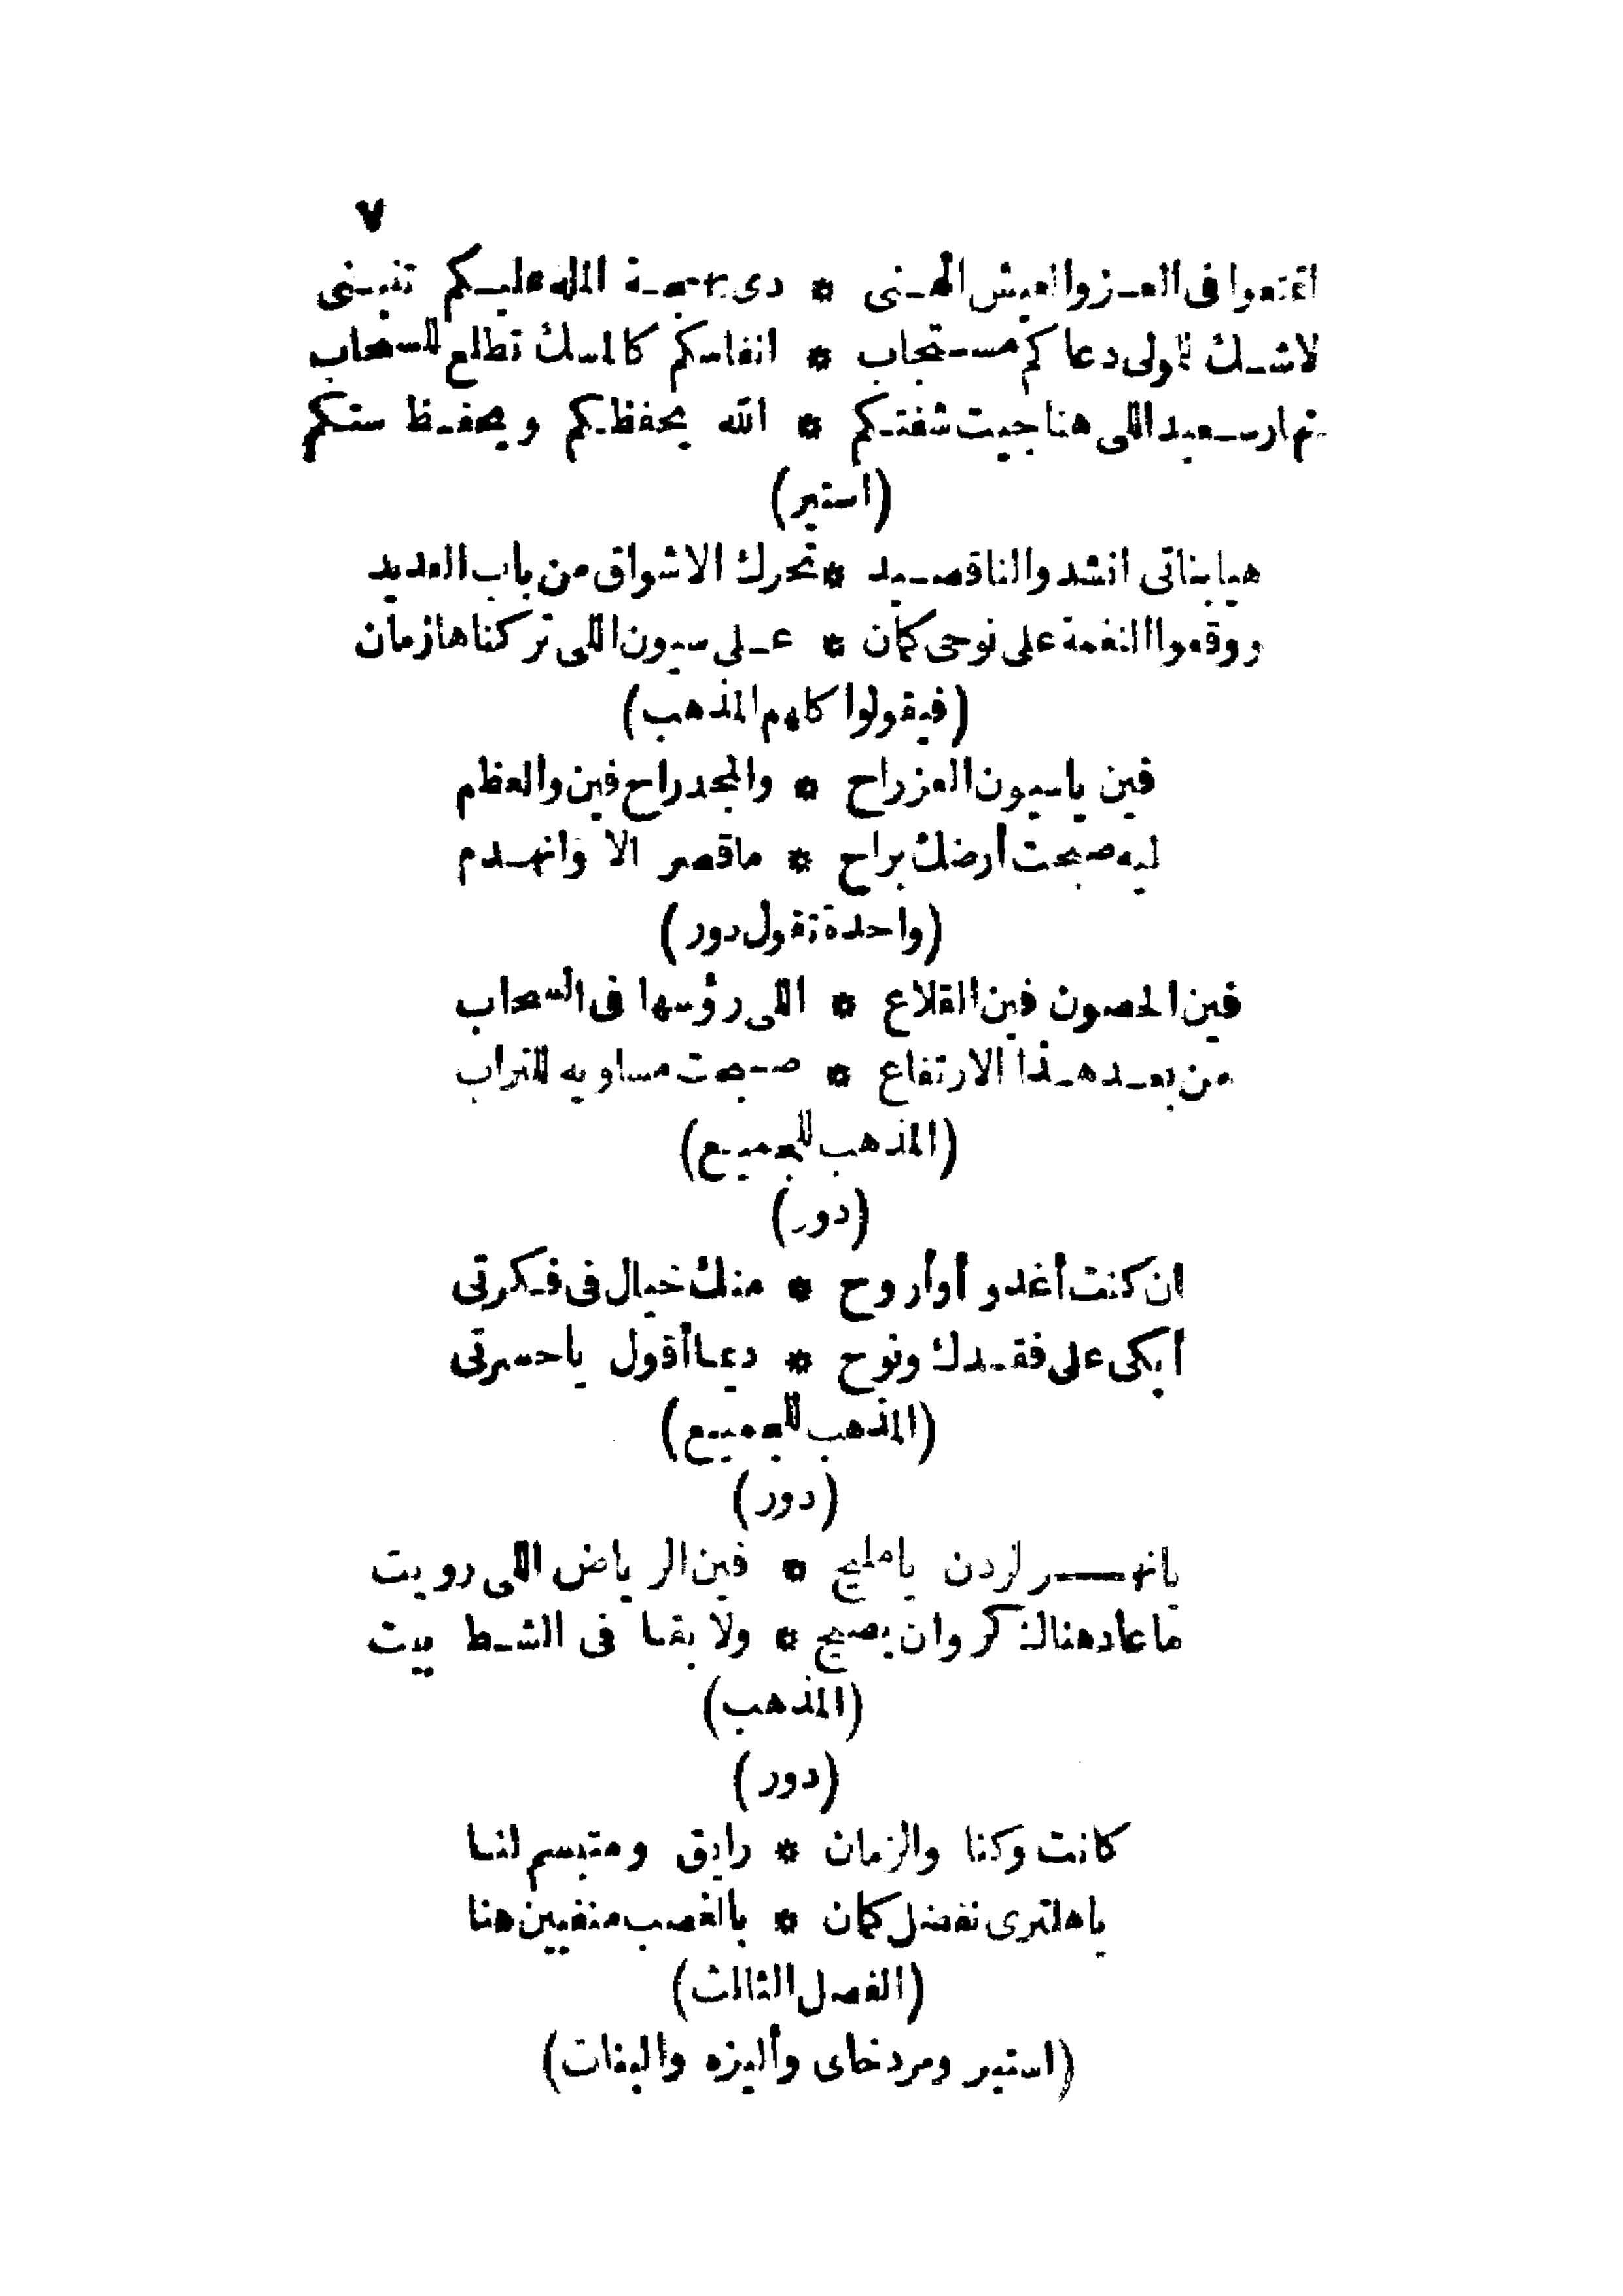 ٧
اتمتعوا فى العـز والعيش الهـنى * دى بهجـة الله عليـكم تنبـنى
لاشـك للمولى دعاكم مسـتجاب * انفاسكم كالمسك تطلع للسحاب
نهار سـعيد اللى هنا جيت شفتـكم * الله يحفظـكم ويحفـظ ستـكم
(استير)
هيا بناتى انشدوا لنا قصـيد * تحرك الاشواق من باب العديد
ووقعوا النغمة على نوحى كمان * عـلى سيون اللى تركناها زمان
(فيقولوا كلهم المذهب)
فين ياسيون العز راح * والمجد راح فين والعظم
ليه صبحت أرضك براح * ماقصر الا وانهـدم
(واحدة تقول دور)
فين الحصون فين القلاع * اللى رؤسها فى السحاب
من بعـد هـذا الارتفاع * صـبحت مساويه للتراب
(المذهب للجميع)
(دور)
ان كنت أغدو أو أروح * منك خيال فى فـكرتى
أبكى على فقـدك ونوح * ديما أقول ياحسرتى
(المذهب للجميع)
(دور)
يانهـــر لردن يامليح * فين الرياض اللى رويت
ماعاد هناك كروان يصيح * ولا بقا فى الشـط بيت
(المذهب)
(دور)
كانت وكنا والزمان * رايق ومتبسم لنـا
ياهلترى نفضل كمان * بالغصب منفيين هنا
(الفصل الثالث)
(استير ومردخاى وأليزه والبنات)